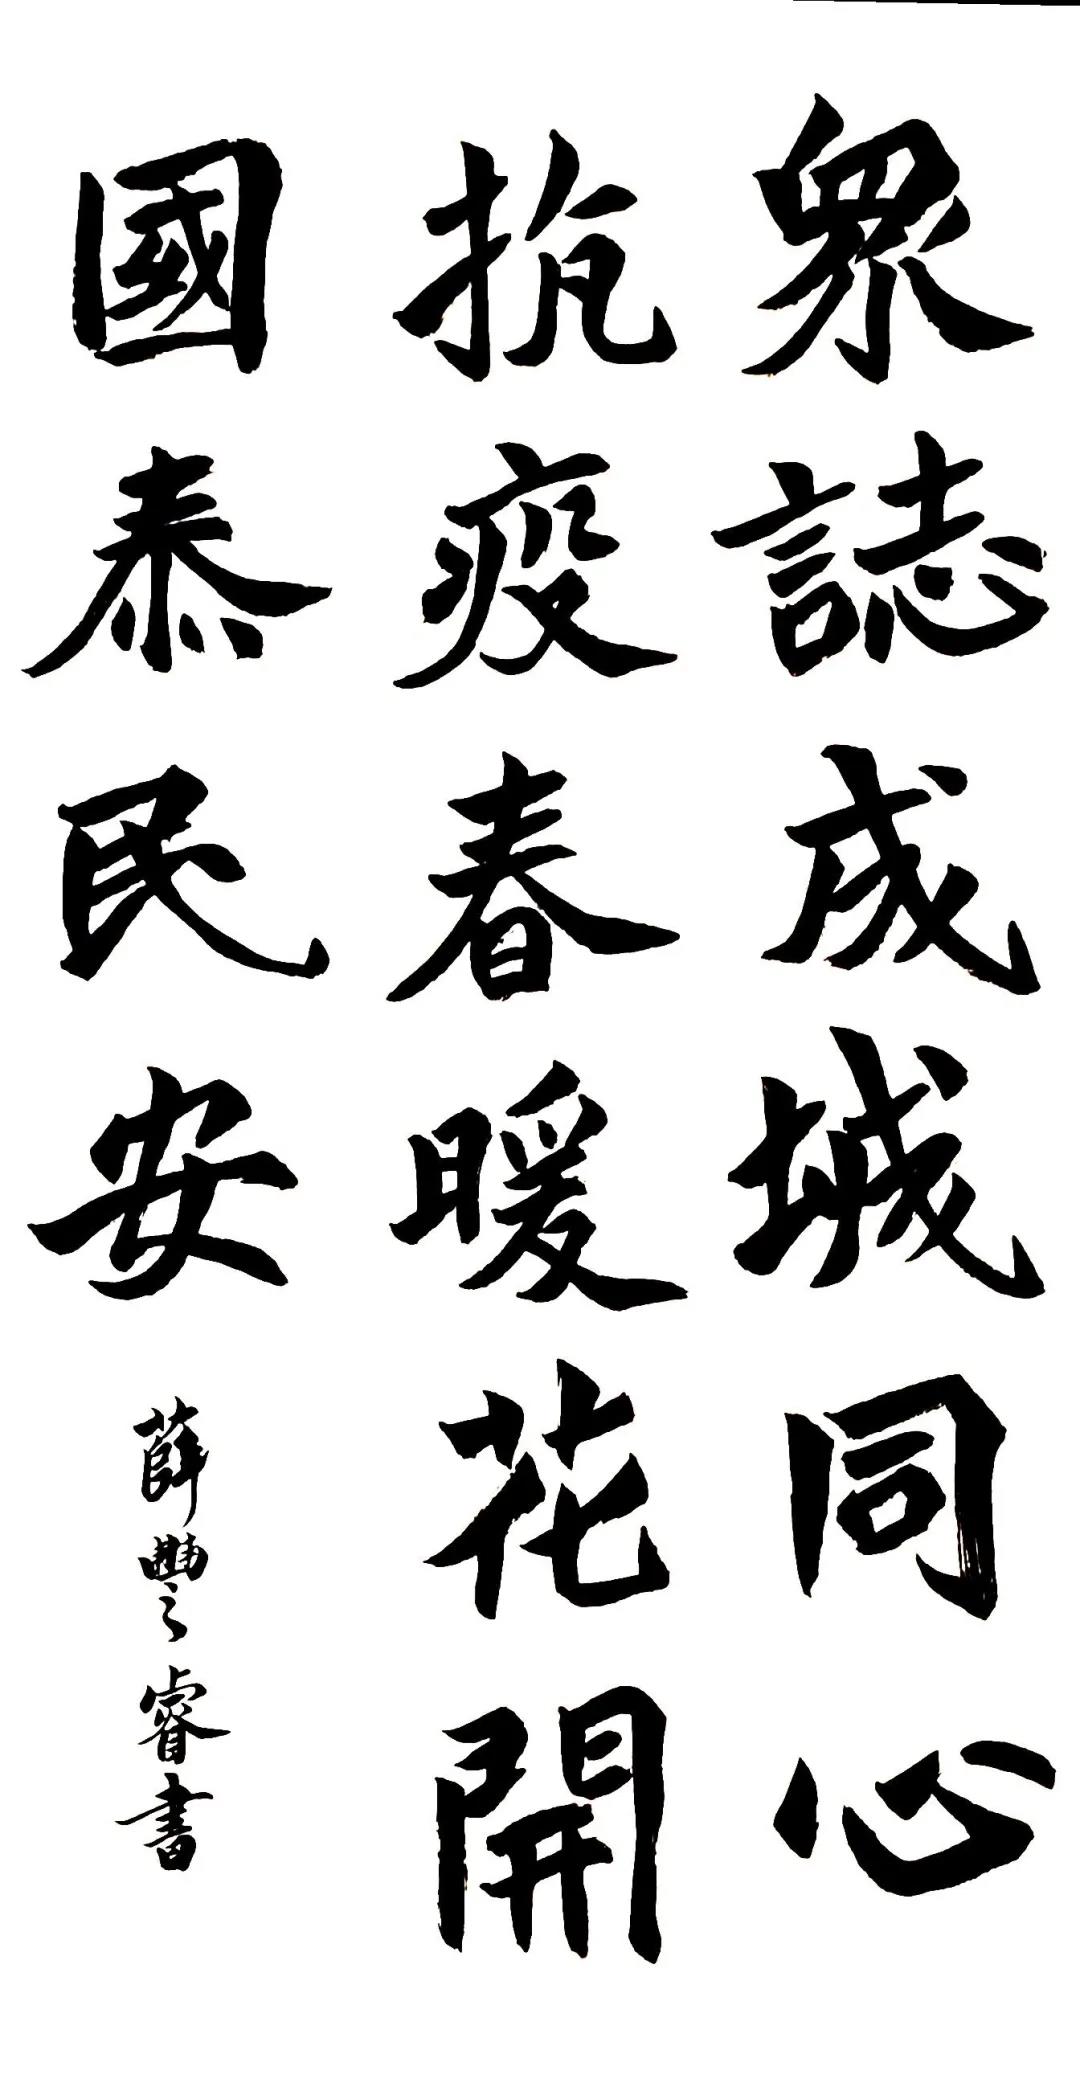 眾誌成城同心
抗疫春暖花開
國泰民安
薛豐睿書